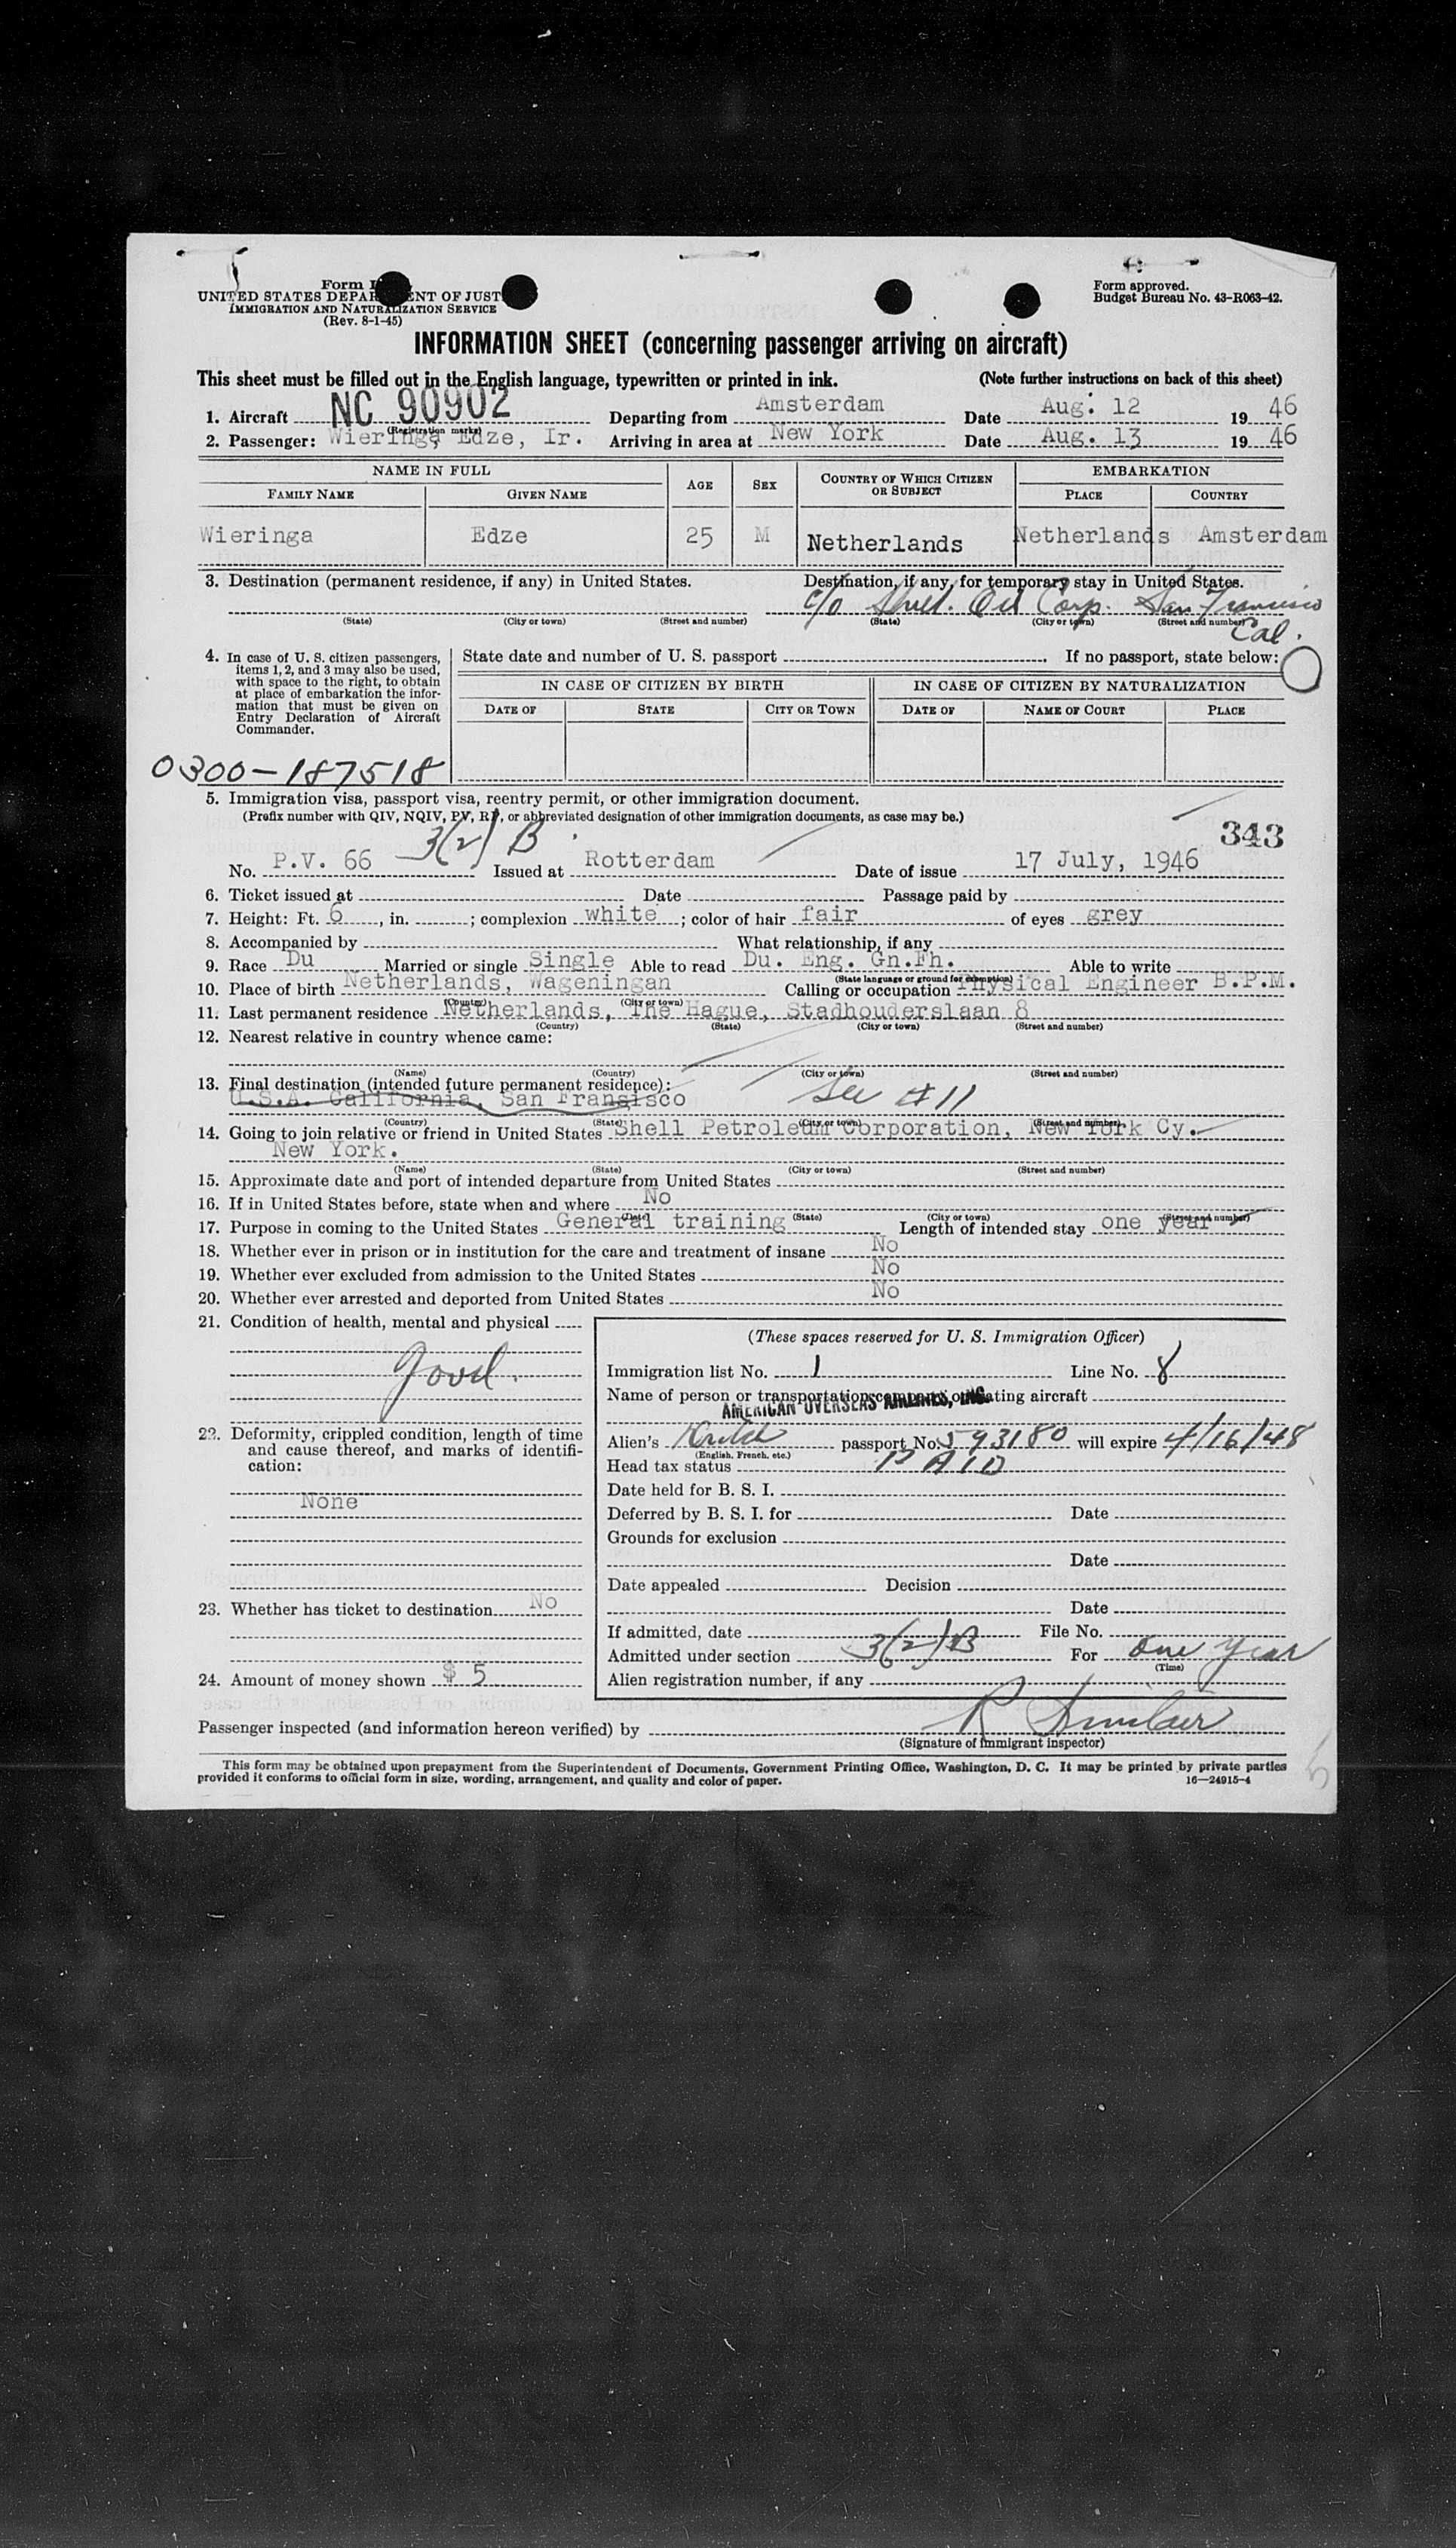 Form I
UNITED STATES DEPARTMENT OF JUST
IMMIGRATION AND NATURALIZATION SERVICE
(Rev. 8-1-45)
Form approved.
Budget Bureau No. 43-R063-42.
INFORMATION SHEET (concerning passenger arriving on aircraft)
This sheet must be filled out in the English language, typewritten or printed in ink. (Note further instructions on back of this sheet)
1. Aircraft NC 90902 Departing from Amsterdam Date Aug. 12 19 46
(Registration marks)
2. Passenger: Wieringa Edze, Ir. Arriving in area at New York Date Aug. 13 19 46
NAME IN FULL AGE SEX COUNTRY OF WHICH CITIZEN OR SUBJECT EMBARKATION
FAMILY NAME GIVEN NAME PLACE COUNTRY
Wieringa Edze 25 M Netherlands Netherlands Amsterdam
3. Destination (permanent residence, if any) in United States. Destination, if any, for temporary stay in United States.
c/o Shell Oil Corp. San Francisco
(State) (City or town) (Street and number) (State) (City or town) (Street and number)
Cal.
4. In case of U. S. citizen passengers, items 1, 2, and 3 may also be used, with space to the right, to obtain at place of embarkation the information that must be given on Entry Declaration of Aircraft Commander.
State date and number of U. S. passport If no passport, state below:
IN CASE OF CITIZEN BY BIRTH IN CASE OF CITIZEN BY NATURALIZATION
DATE OF STATE CITY OR TOWN DATE OF NAME OF COURT PLACE
0300-187518
5. Immigration visa, passport visa, reentry permit, or other immigration document.
(Prefix number with QIV, NQIV, PV, RP, or abbreviated designation of other immigration documents, as case may be.)
343
3(2) B
No. P.V. 66 Issued at Rotterdam Date of issue 17 July, 1946
6. Ticket issued at Date Passage paid by
7. Height: Ft. 6, in. ; complexion white ; color of hair fair of eyes grey
8. Accompanied by What relationship, if any
9. Race Du Married or single Single Able to read Du. Eng. Gn.Fh. Able to write
(State language or ground for exemption)
10. Place of birth Netherlands, Wageningan Calling or occupation Physical Engineer B.P.M.
(Country) (City or town)
11. Last permanent residence Netherlands, The Hague, Stadhouderslaan 8
(Country) (State) (City or town) (Street and number)
12. Nearest relative in country whence came:
(Name) (Country) (City or town) (Street and number)
13. Final destination (intended future permanent residence):
U.S.A. California, San Fransisco See #11
(Country) (State) (City or town) (Street and number)
14. Going to join relative or friend in United States Shell Petroleum Corporation, New York Cy.
New York.
(Name) (State) (City or town) (Street and number)
15. Approximate date and port of intended departure from United States
16. If in United States before, state when and where No
(Date) (State) (City or town) (Street and number)
17. Purpose in coming to the United States General training Length of intended stay one year
18. Whether ever in prison or in institution for the care and treatment of insane No
19. Whether ever excluded from admission to the United States No
20. Whether ever arrested and deported from United States No
21. Condition of health, mental and physical
Good.
22. Deformity, crippled condition, length of time and cause thereof, and marks of identification:
None
23. Whether has ticket to destination No
24. Amount of money shown $ 5
(These spaces reserved for U. S. Immigration Officer)
Immigration list No. 1 Line No. 8
Name of person or transportation company operating aircraft
AMERICAN OVERSEAS AIRLINES, INC.
Alien's Dutch passport No. 593180 will expire 4/16/48
(English, French, etc.)
Head tax status PAID
Date held for B. S. I.
Deferred by B. S. I. for Date
Grounds for exclusion
Date
Date appealed Decision
Date
If admitted, date File No.
Admitted under section 3(2)B For One Year
(Time)
Alien registration number, if any
Passenger inspected (and information hereon verified) by R Sinclair
(Signature of Immigrant Inspector)
This form may be obtained upon prepayment from the Superintendent of Documents, Government Printing Office, Washington, D. C. It may be printed by private parties
provided it conforms to official form in size, wording, arrangement, and quality and color of paper. 16—24915-4